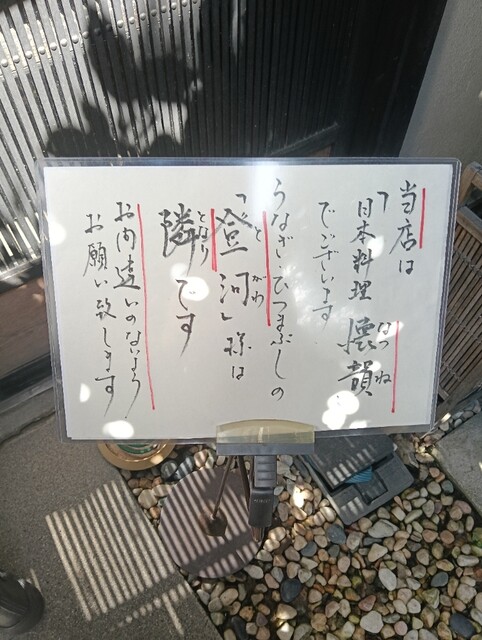 当店は
「日本料理 懐韻
はつね
でございます
うなぎ・ひつまぶしの
「登河」様は
とがわ
隣です
となり
お間違いのないよう
お願い致します